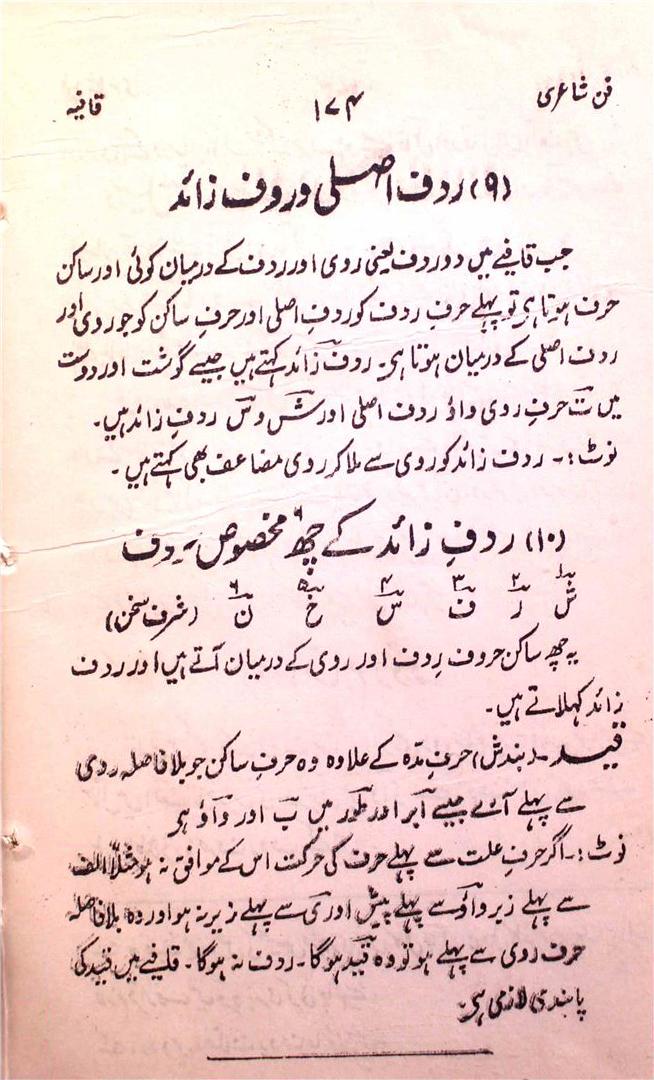 فن شاعری ۱۷۴ قافیہ
(۹) ردف اصلی و روف زائد
جب قافیے میں دو ردف یعنی روی اور ردف کے درمیان کوئی اور ساکن
حرف ہوتا ہی تو پہلے حرفِ ردف کو ردفِ اصلی اور حرفِ ساکن کو جو روی اور
ردف اصلی کے درمیان ہوتا ہی۔ روف زائد کہتے ہیں جیسے گوشت اور دوست
میں ت حرفِ روی واؤ ردف اصلی اور ش و س ردفِ زائد ہیں۔
نوٹ :۔ ردف زائد کو روی سے ملا کر روی مضاعف بھی کہتے ہیں۔
(۱۰) ردفِ زائد کے چھ ۶ مخصوص حروف
۱ ۲ ۳ ۴ ۵ ۶
ش ر ف س خ ن (شرف سخن)
یہ چھ ساکن حروف رِدف اور روی کے درمیان آتے ہیں اور ردف
زائد کہلاتے ہیں۔
قید۔ (بندش) حرفِ مدّہ کے علاوہ وہ حرفِ ساکن جو بلا فاصلہ روی
سے پہلے آئے جیسے اَبر اور طَور میں ب اور واؤ ہر
نوٹ :۔ اگر حرفِ علت سے پہلے حرف کی حرکت اس کے موافق نہ ہو مثلاً الف
سے پہلے زبر واؤ سے پہلے پیش اور ی سے پہلے زیر نہ ہو اور وہ بلا فاصلہ
حرف روی سے پہلے ہو تو وہ قید ہوگا۔ ردف نہ ہوگا۔ قافیے میں قید کی
پابندی لازمی ہی۔